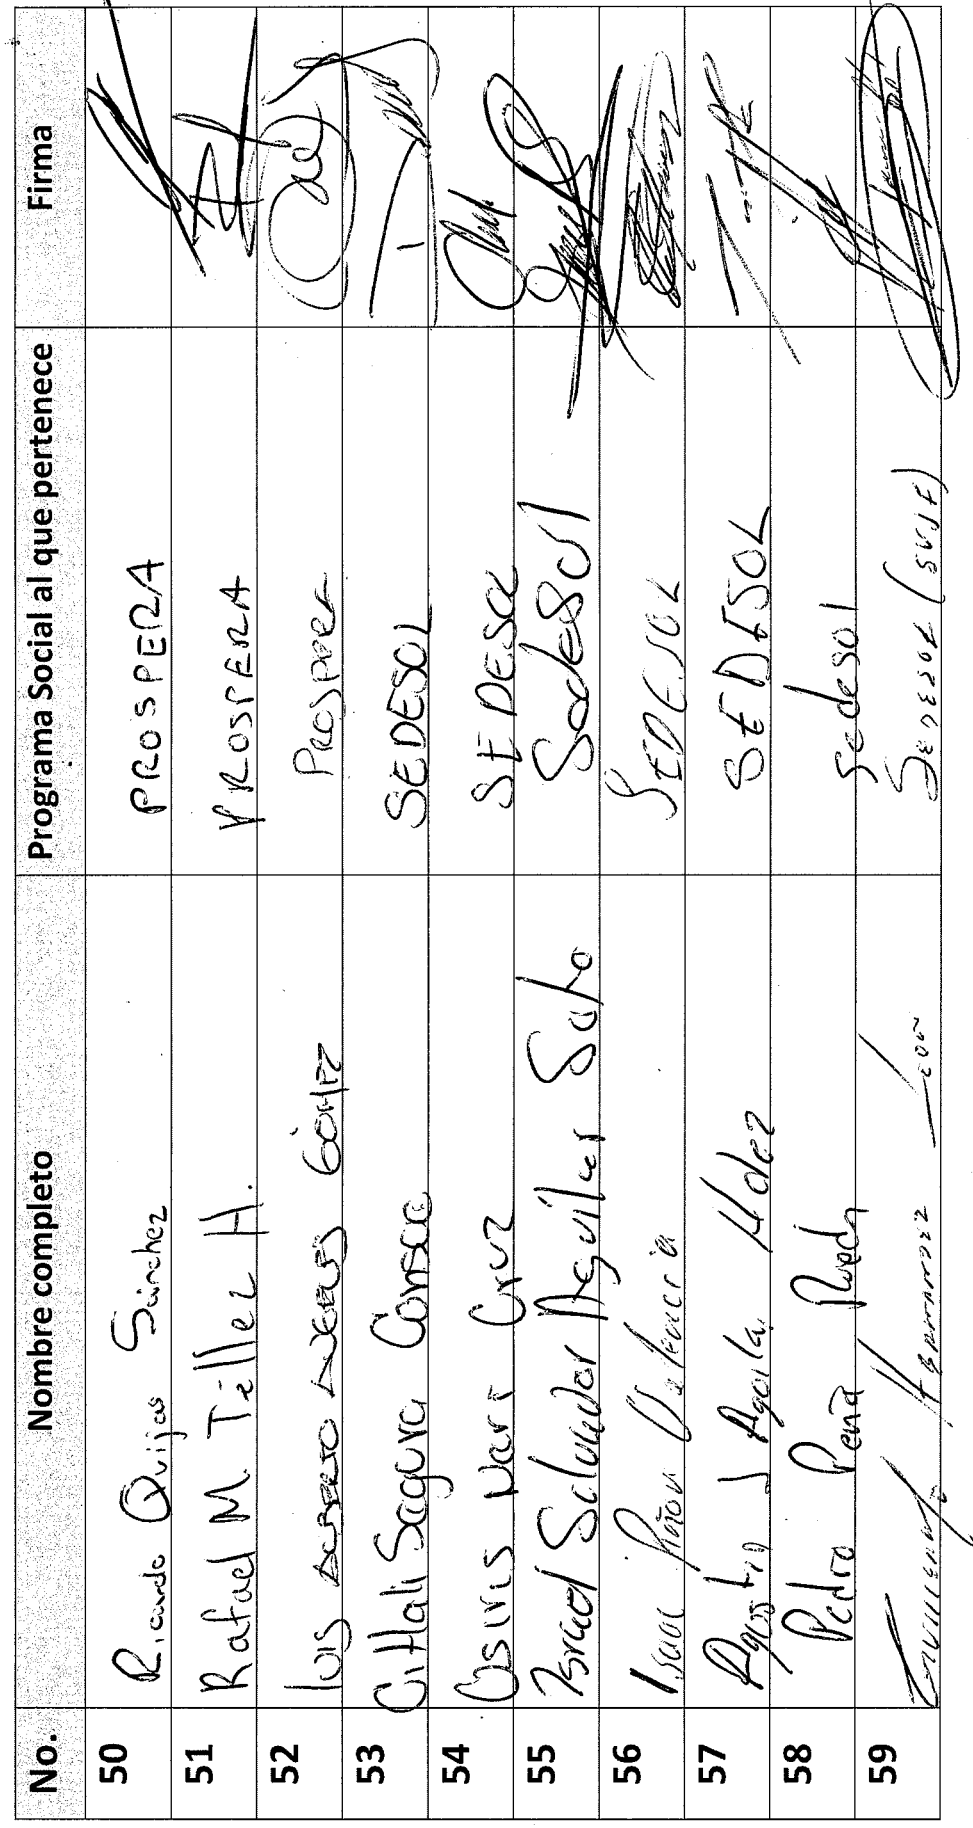 No. Nombre completo Programa Social al que pertenece Firma
50 Ricardo Quijas Sánchez PROSPERA
51 Rafael M. Téllez H. PROSPERA
52 Luis Alberto Negrs Gómez PROSPERA
53 Citlali Sagura Consca SEDESOL
54 Osiris Nari Cruz SEDESOL
55 Israel Salvador Aguilar Soto SedeSol
56 Isaac Piñón Valencia SEDESOL
57 Agustin J Aguila Hdez SEDESOL
58 Pedro Peña Sedesol
59 Hernandez Leon Sedesol